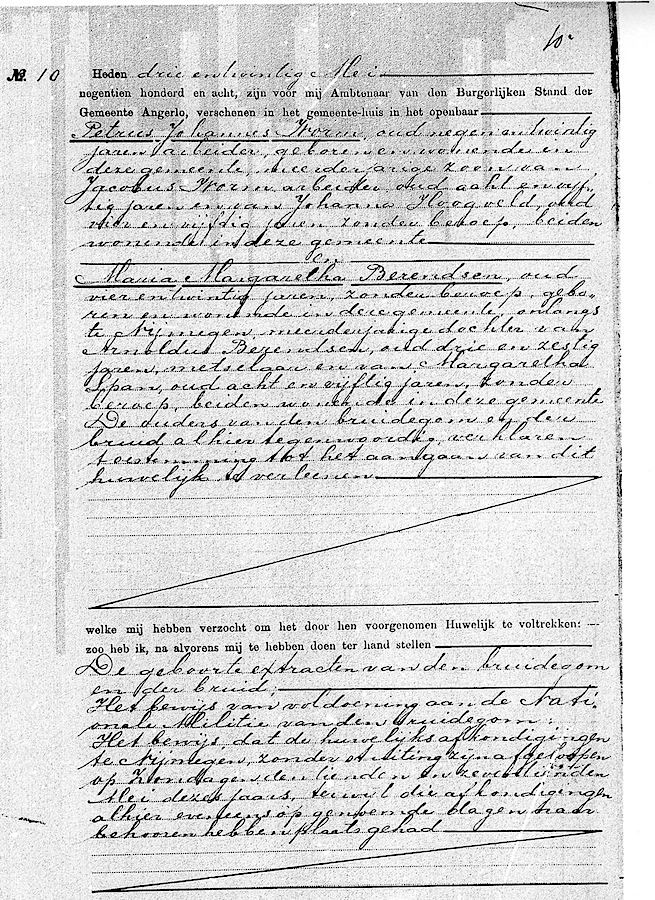 10
№ 10 Heden drie en twintig Mei
negentien honderd en acht, zijn voor mij Ambtenaar van den Burgerlijken Stand der
Gemeente Angerlo, verschenen in het gemeente-huis in het openbaar
Petrus Johannes Worm, oud negen en twintig
jaren arbeider, geboren en wonende in
deze gemeente, meerderjarige zoon van
Jacobus Worm arbeider, oud acht en vijf-
tig jaren en van Johanna Hoogveld, oud
vier en vijftig jaren zonder beroep, beiden
wonende in deze gemeente
En
Maria Margaretha Berendsen, oud
vier en twintig jaren, zonder beroep, gebo-
ren en wonende in deze gemeente, onlangs
te Nijmegen, meerderjarige dochter van
Arnoldus Berendsen, oud drie en zestig
jaren, metselaar en van Margaretha
Span, oud acht en vijftig jaren, zonder
beroep, beiden wonende in deze gemeente
De ouders van den bruidegom en der
bruid alhier tegenwoordig, verklaren
toestemming tot het aangaan van dit
huwelijk te verleenen
welke mij hebben verzocht om het door hen voorgenomen Huwelijk te voltrekken:
zoo heb ik, na alvorens mij te hebben doen ter hand stellen
De geboorte extracten van den bruidegom
en der bruid;
Het bewijs van voldoening aan de Nati-
onale Militie van den bruidegom;
Het bewijs dat de huwelijksafkondigingen
te Nijmegen, zonder stuiting zijn afgeloopen
op Zondagen den tienden en zeventienden
Mei dezes jaars, terwijl die afkondigingen
alhier eveneens op genoemde dagen naar
behooren hebben plaats gehad